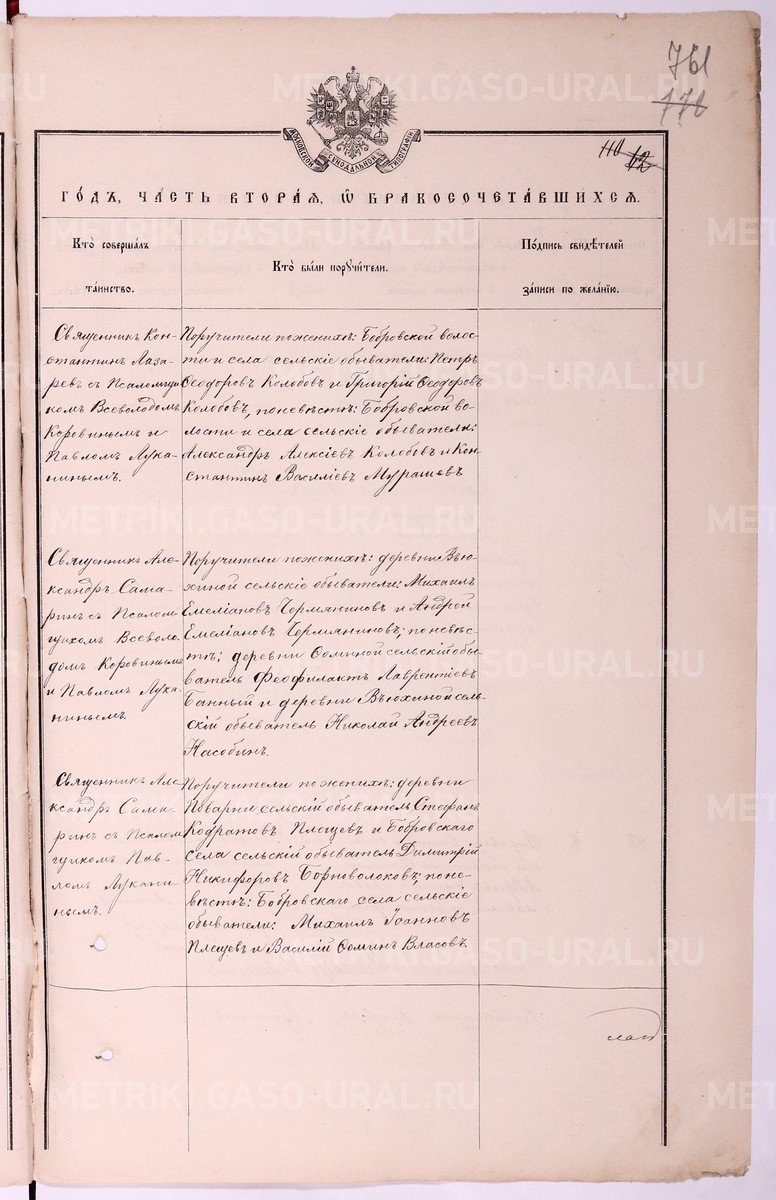 761
776
МОСКОВСКОЙ СИНОДАЛЬНОЙ ТИПОГРАФІИ
110 62
ГОДЪ, ЧАСТЬ ВТОРАЯ, Ѡ БРАКОСОЧЕТАВШИХСЯ.
Кто совершалъ
таинство.
Кто были поручители.
Подпись свидѣтелей
записи по желанію.
Священникъ Кон-
стантинъ Лаза-
ревъ съ Псаломщи-
комъ Всеволодомъ
Коровинымъ и
Павломъ Лука-
нинымъ.
Поручители по женихѣ: Бобровской волос-
ти и села сельскіе обыватели: Петръ
Ѳеодоровъ Колобовъ и Григорій Ѳеодоровъ
Колобовъ, по невѣстѣ: Бобровской во-
лости и села сельскіе обыватели:
Александръ Алексіевъ Колобовъ и Кон-
стантинъ Василіевъ Мурашовъ
Священникъ Але-
ксандръ Сама-
ринъ съ Псалом-
щикомъ Всеволо-
домъ Коровинымъ
и Павломъ Лука-
нинымъ.
Поручители по женихѣ: деревни Вью-
хиной сельскіе обыватели: Михаилъ
Емеліановъ Чермяниновъ и Андрей
Емеліановъ Чермяниновъ; по невѣс-
тѣ: деревни Ѳоминой сельскій обы-
ватель Феофилактъ Лаврентіевъ
Банный и деревни Вьюхиной сель-
скій обыватель Николай Андреевъ
Насобинъ.
Священникъ Але-
ксандръ Сама-
ринъ съ Псалом-
щикомъ Пав-
ломъ Лукани-
нымъ.
Поручители по женихѣ: деревни
Поварни сельскій обыватель Стефанъ
Кодратовъ Плещевъ и Бобровскаго
села сельскій обыватель Димитрій
Никифоровъ Борноволоковъ; по не-
вѣстѣ: Бобровскаго села сельскіе
обыватели: Михаилъ Іоанновъ
Плещевъ и Василій Ѳоминъ Власовъ.
METRIKI.GASO-URAL.RU